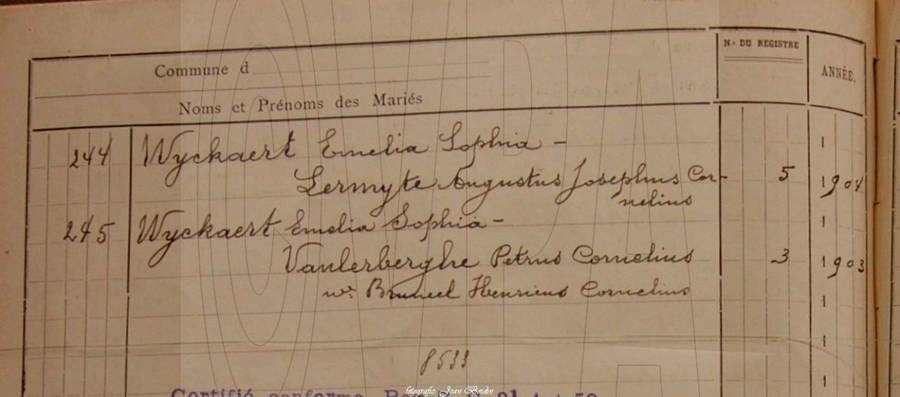 N° DU REGISTRE
Commune d
ANNÉE.
Noms et Prénoms des Mariés
244 Wyckaert Emelia Sophia –
Lermyte Augustus Josephus Cor- 5 1904
nelius
245 Wyckaert Emelia Sophia –
Vanlerberghe Petrus Cornelius 3 1903
we. Bruneel Henricus Cornelius
8533
Certifié conforme
fotografie: Jean